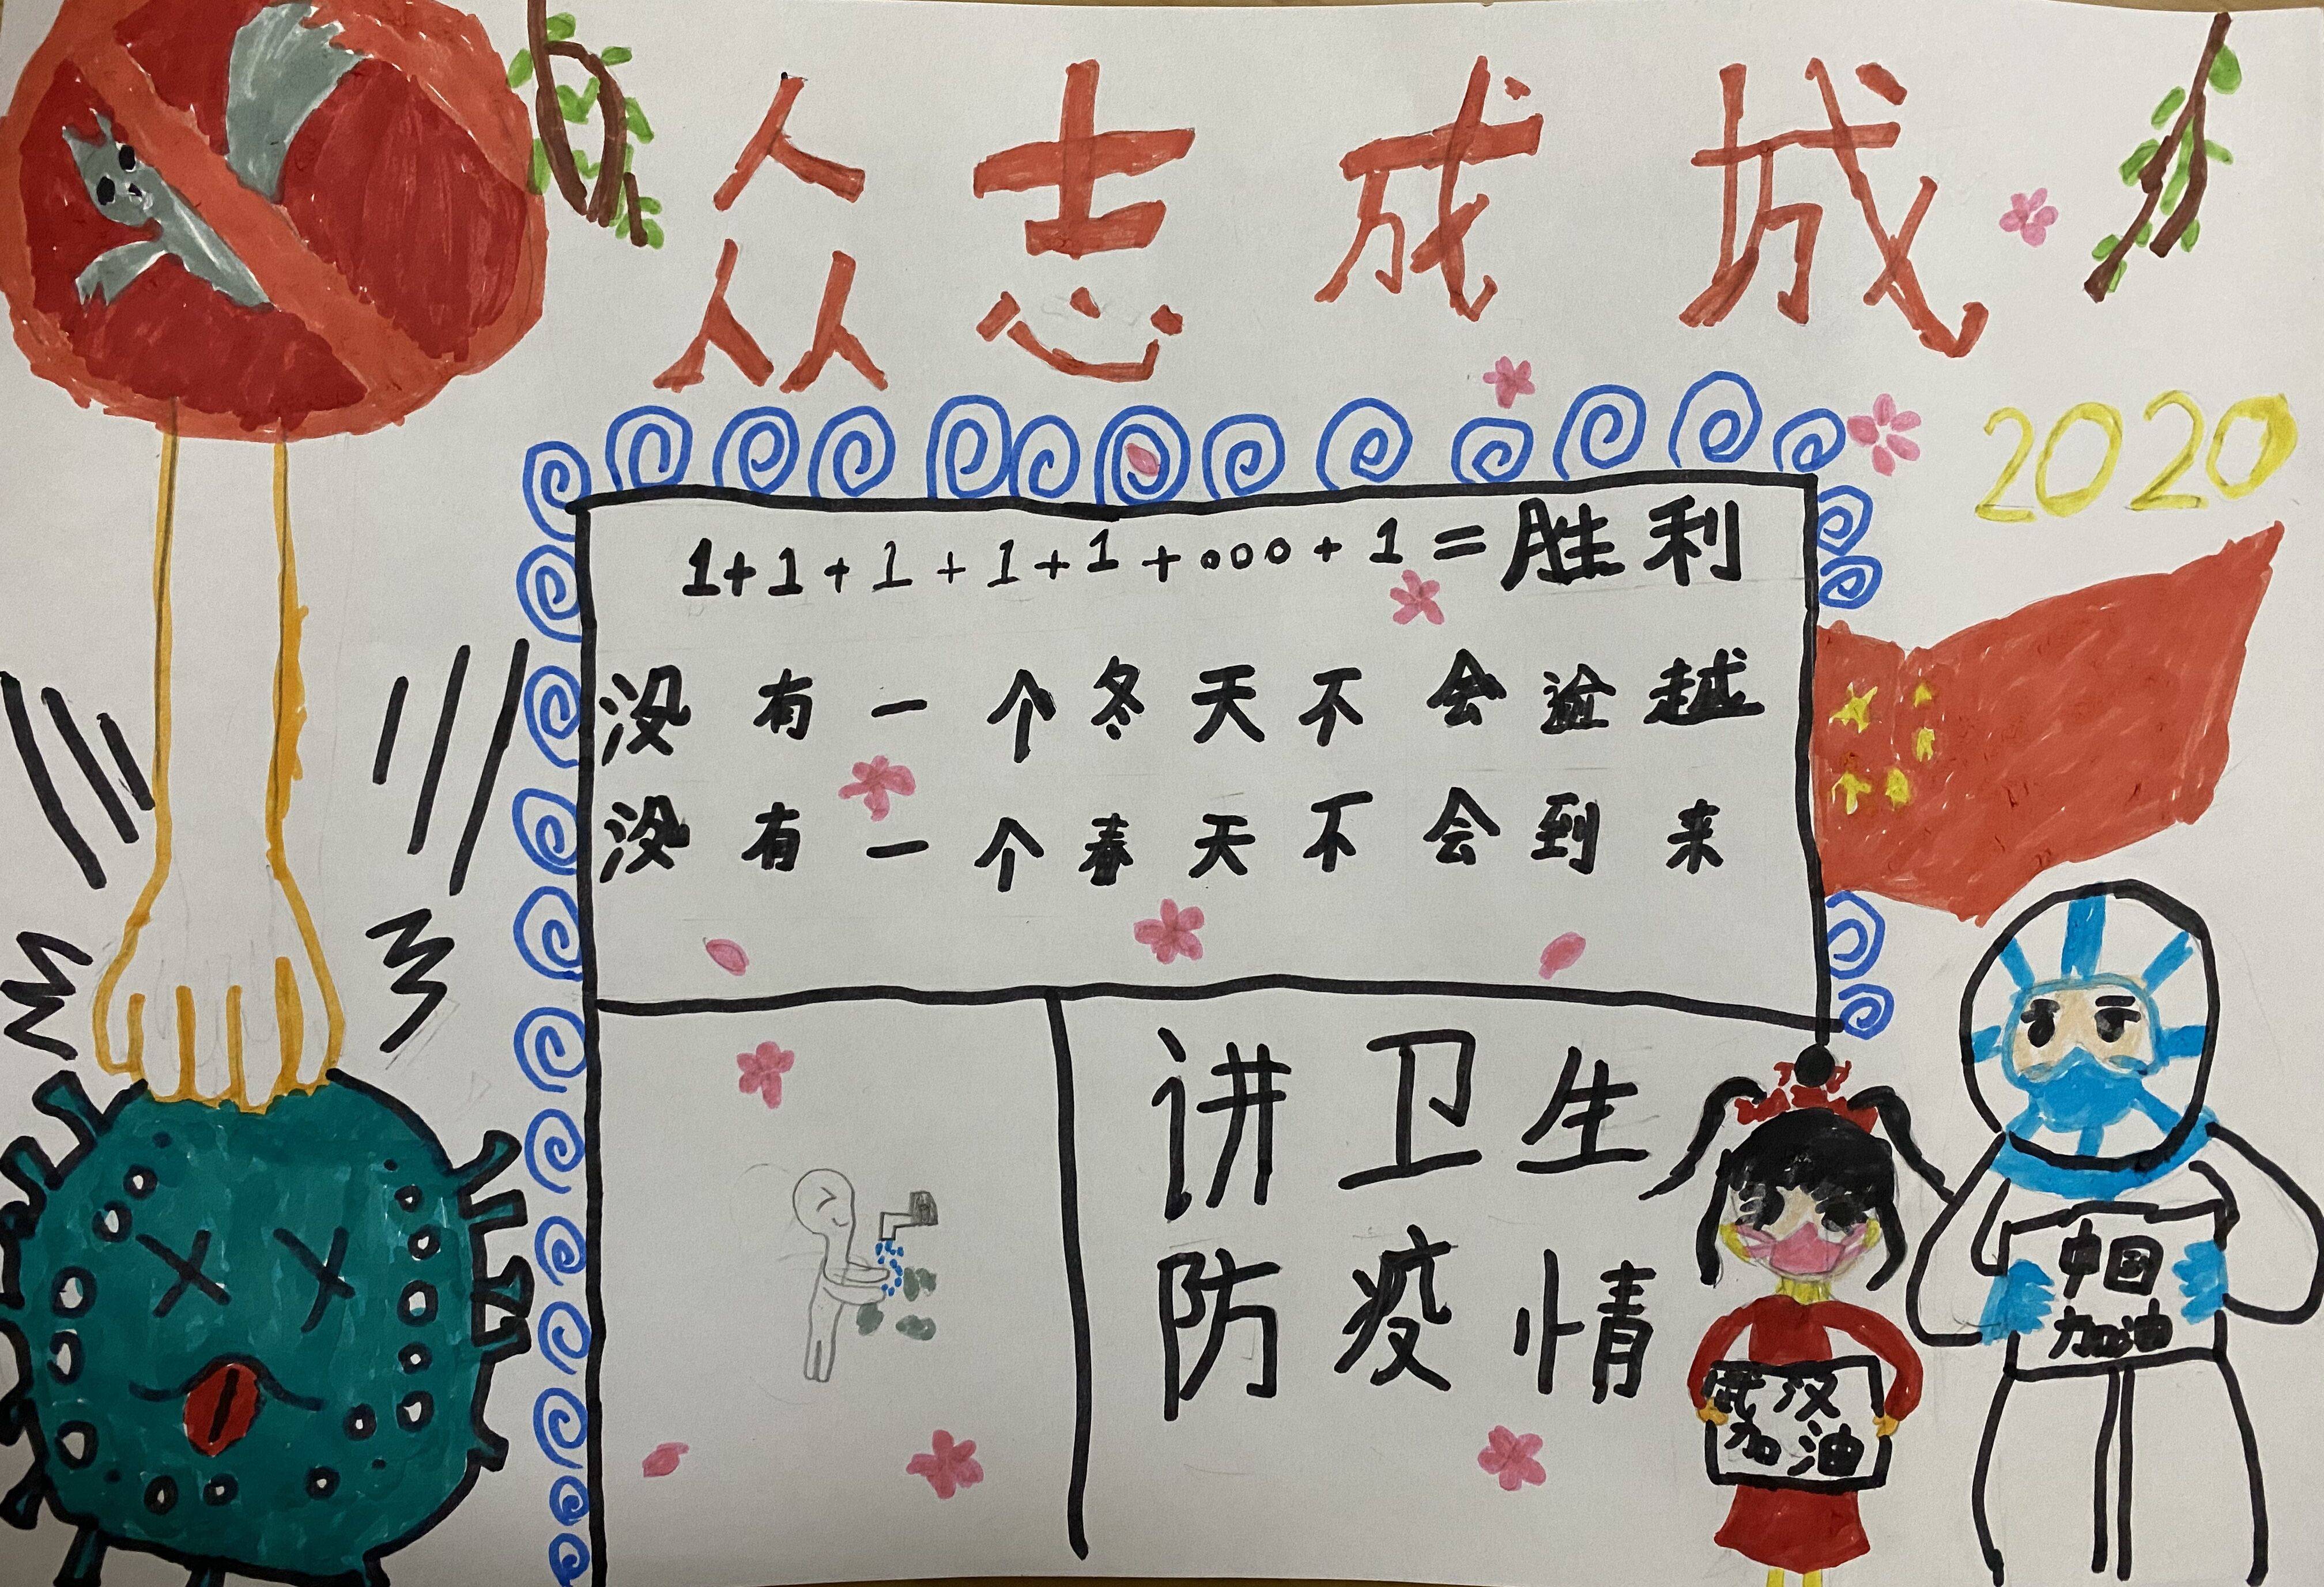 众志成城
2020
1+1+1+1+1+ooo+1=胜利
没有一个冬天不会逾越
没有一个春天不会到来
讲卫生
防疫情
武汉
加油
中国
加油